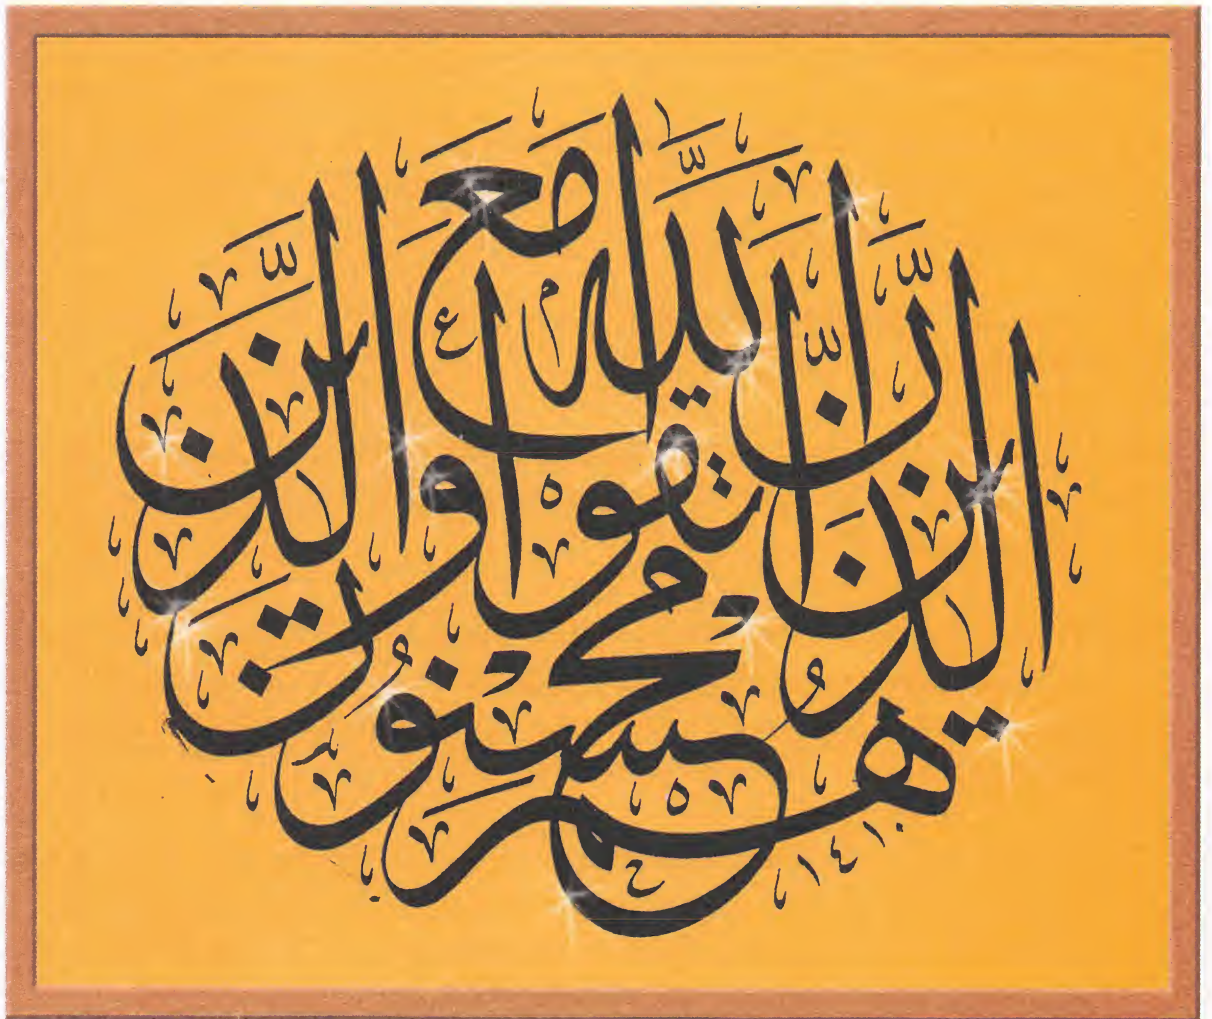 إن الله مع الذين اتقوا والذين هم محسنون
١٤١٠